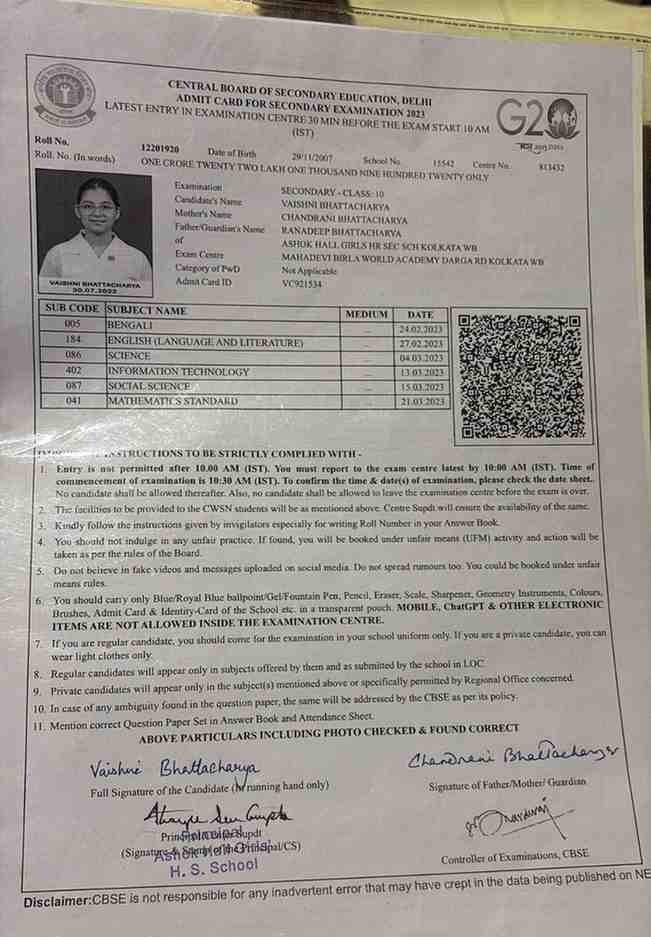 CENTRAL BOARD OF SECONDARY EDUCATION, DELHI
ADMIT CARD FOR SECONDARY EXAMINATION 2023
LATEST ENTRY IN EXAMINATION CENTRE 30 MIN BEFORE THE EXAM START 10 AM
(IST)
G20
Roll No. 12201920 Date of Birth 29/11/2007 School No. 15542 Centre No. 813432
Roll. No. (In words) ONE CRORE TWENTY TWO LAKH ONE THOUSAND NINE HUNDRED TWENTY ONLY
Examination SECONDARY - CLASS: 10
Candidate's Name VAISHNI BHATTACHARYA
Mother's Name CHANDRANI BHATTACHARYA
Father/Guardian's Name RANADEEP BHATTACHARYA
of ASHOK HALL GIRLS HR SEC SCH KOLKATA WB
Exam Centre MAHADEVI BIRLA WORLD ACADEMY DARGA RD KOLKATA WB
Category of PwD Not Applicable
Admit Card ID VC921534
VAISHNI BHATTACHARYA
30.07.2022
SUB CODE SUBJECT NAME MEDIUM DATE
005 BENGALI -- 24.02.2023
184 ENGLISH (LANGUAGE AND LITERATURE) -- 27.02.2023
086 SCIENCE -- 04.03.2023
402 INFORMATION TECHNOLOGY -- 13.03.2023
087 SOCIAL SCIENCE -- 15.03.2023
041 MATHEMATICS STANDARD -- 21.03.2023
INSTRUCTIONS TO BE STRICTLY COMPLIED WITH -
1. Entry is not permitted after 10.00 AM (IST). You must report to the exam centre latest by 10:00 AM (IST). Time of
commencement of examination is 10:30 AM (IST). To confirm the time & date(s) of examination, please check the date sheet..
No candidate shall be allowed thereafter. Also, no candidate shall be allowed to leave the examination centre before the exam is over.
2. The facilities to be provided to the CWSN students will be as mentioned above. Centre Supdt will ensure the availability of the same.
3. Kindly follow the instructions given by invigilators especially for writing Roll Number in your Answer Book.
4. You should not indulge in any unfair practice. If found, you will be booked under unfair means (UFM) activity and action will be
taken as per the rules of the Board.
5. Do not believe in fake videos and messages uploaded on social media. Do not spread rumours too. You could be booked under unfair
means rules.
6. You should carry only Blue/Royal Blue ballpoint/Gel/Fountain Pen, Pencil, Eraser, Scale, Sharpener, Geometry Instruments, Colours,
Brushes, Admit Card & Identity-Card of the School etc. in a transparent pouch. MOBILE, ChatGPT & OTHER ELECTRONIC
ITEMS ARE NOT ALLOWED INSIDE THE EXAMINATION CENTRE.
7. If you are regular candidate, you should come for the examination in your school uniform only. If you are a private candidate, you can
wear light clothes only.
8. Regular candidates will appear only in subjects offered by them and as submitted by the school in LOC.
9. Private candidates will appear only in the subject(s) mentioned above or specifically permitted by Regional Office concerned.
10. In case of any ambiguity found in the question paper, the same will be addressed by the CBSE as per its policy.
11. Mention correct Question Paper Set in Answer Book and Attendance Sheet.
ABOVE PARTICULARS INCLUDING PHOTO CHECKED & FOUND CORRECT
Vaishni Bhattacharya Chandrani Bhattacharya
Full Signature of the Candidate (In running hand only) Signature of Father/Mother/ Guardian
Sen Gupta
Principal
(Signature & Stamp of the Principal/CS)
Ashok Hall Girls'
H. S. School
Controller of Examinations, CBSE
Disclaimer:CBSE is not responsible for any inadvertent error that may have crept in the data being published on NE